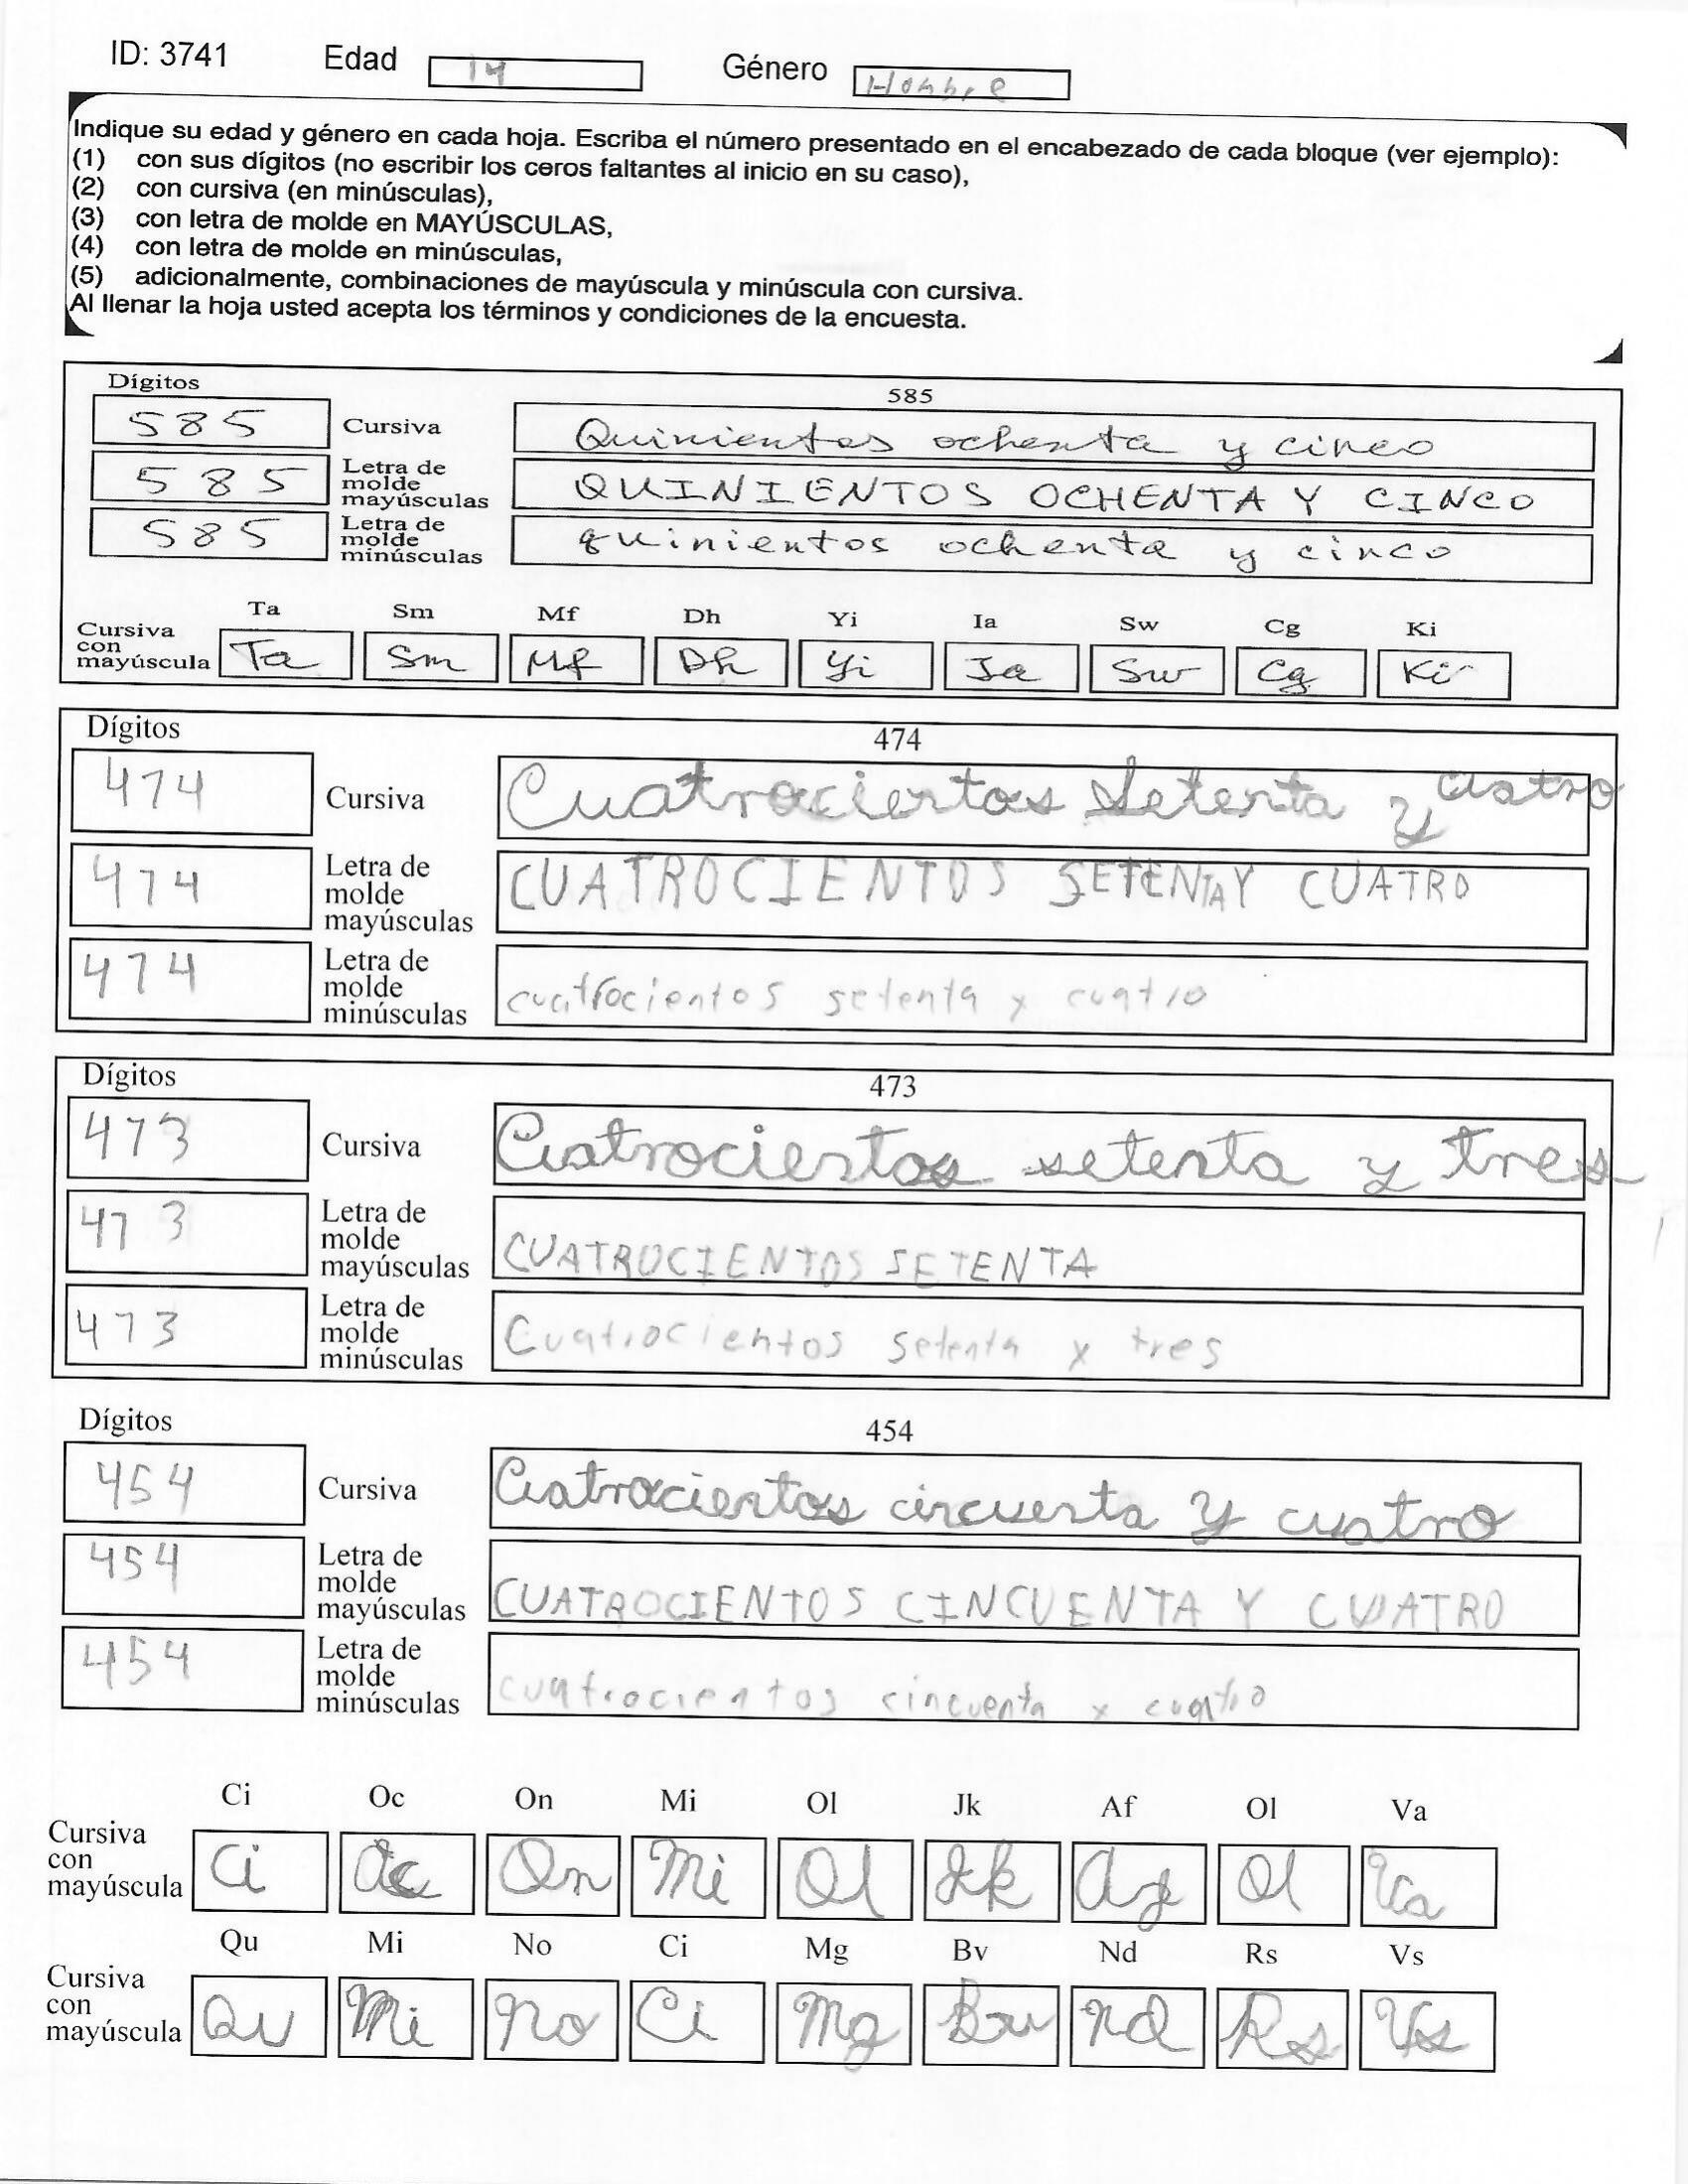 ID: 3741 Edad 14 Género Hombre
Indique su edad y género en cada hoja. Escriba el número presentado en el encabezado de cada bloque (ver ejemplo):
(1) con sus dígitos (no escribir los ceros faltantes al inicio en su caso),
(2) con cursiva (en minúsculas),
(3) con letra de molde en MAYÚSCULAS,
(4) con letra de molde en minúsculas,
(5) adicionalmente, combinaciones de mayúscula y minúscula con cursiva.
Al llenar la hoja usted acepta los términos y condiciones de la encuesta.
Dígitos 585
585 Cursiva Quinientos ochenta y cinco
585 Letra de molde mayúsculas QUINIENTOS OCHENTA Y CINCO
585 Letra de molde minúsculas quinientos ochenta y cinco
Ta Sm Mf Dh Yi Ia Sw Cg Ki
Cursiva con mayúscula Ta Sm Mf Dh Yi Ia Sw Cg Ki
Dígitos 474
474 Cursiva Cuatrocientos Setenta y cuatro
474 Letra de molde mayúsculas CUATROCIENTOS SETENTA Y CUATRO
474 Letra de molde minúsculas cuatrocientos setenta y cuatro
Dígitos 473
473 Cursiva Cuatrocientos setenta y tres
473 Letra de molde mayúsculas CUATROCIENTOS SETENTA
473 Letra de molde minúsculas Cuatrocientos setenta y tres
Dígitos 454
454 Cursiva Cuatrocientos cincuenta y cuatro
454 Letra de molde mayúsculas CUATROCIENTOS CINCUENTA Y CUATRO
454 Letra de molde minúsculas cuatrocientos cincuenta y cuatro
Ci Oc On Mi Ol Jk Af Ol Va
Cursiva con mayúscula Ci Oc On Mi Ol Jk Af Ol Va
Qu Mi No Ci Mg Bv Nd Rs Vs
Cursiva con mayúscula Qu Mi No Ci Mg Bv Nd Rs Vs